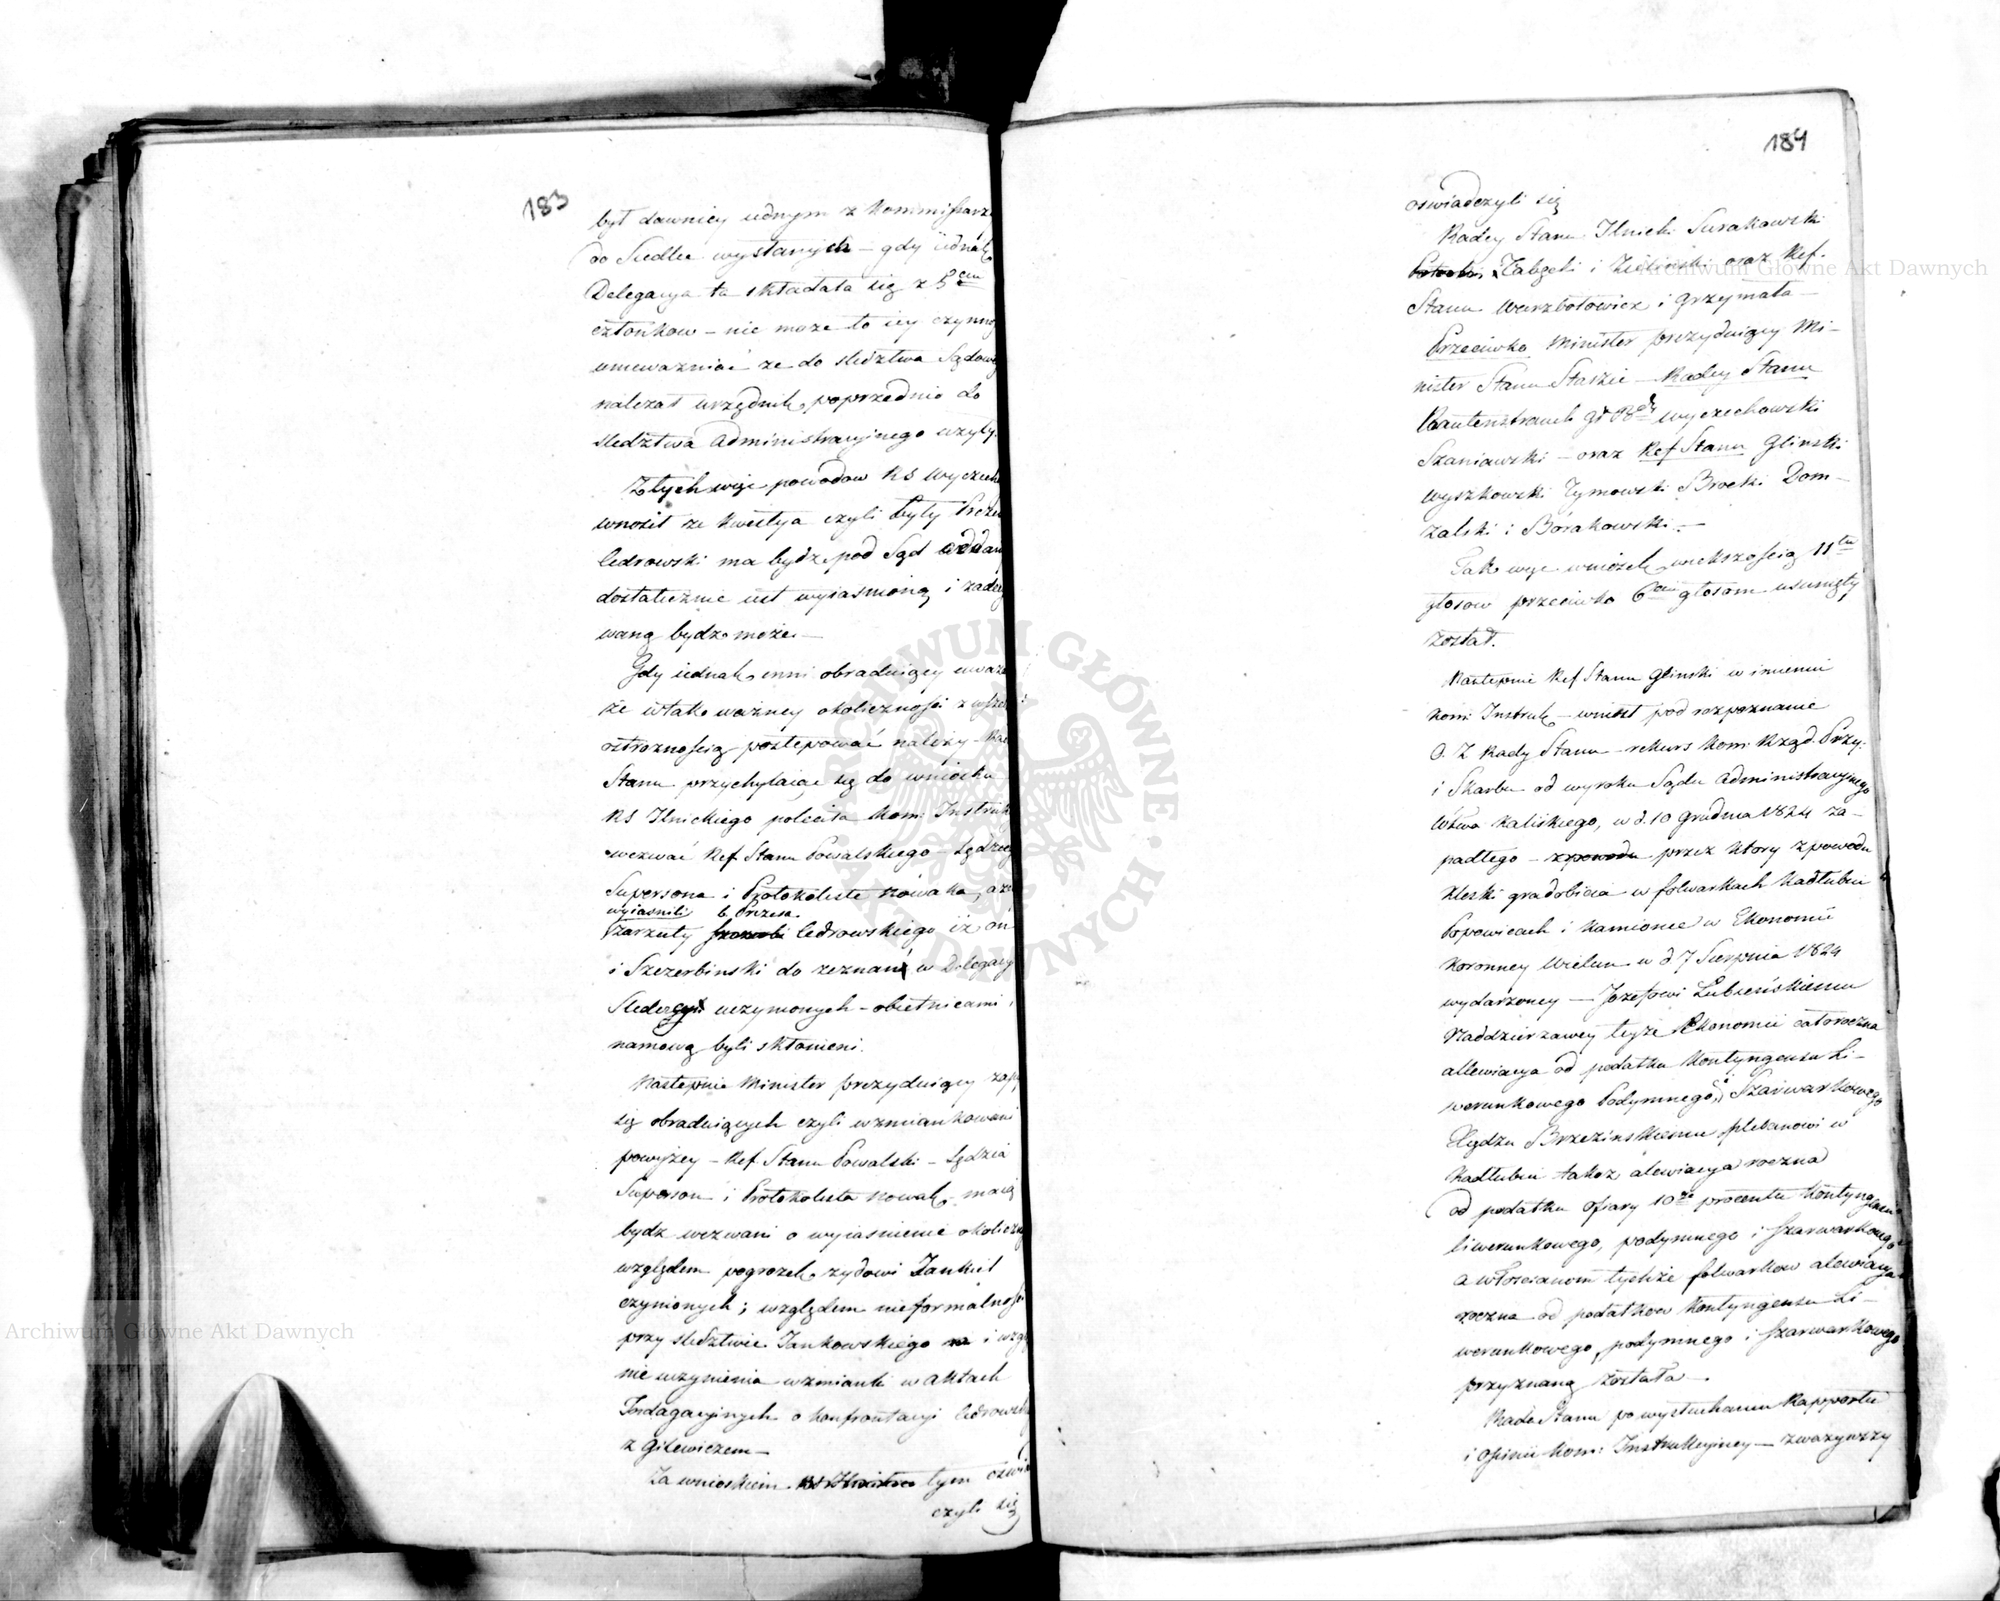 183
był dawniey iednym z Kommissarz
do Siedlec wysłanych – gdy iednak
Delegacya ta składała się z 5ciu
członkow – nie może to iey czynno
unieważniać że do sledztwa Sądowe
należał urzędnik poprzednio do
sledztwa administracyjnego użyty.
Z tych więc powodow RS Wyczech
wnosił że kwestya czyli były Preze
Cedrowski ma bydź pod Sąd oddan
dostatecznie iest wyiasnioną i zadecy
waną bydź może. –
Gdy iednak inni obraduiący uważa
że w tak ważney okoliczności z wszel
ostrożnością postępować należy – Rad
Stanu przychylaiąc się do wniosku
RS Ilnickiego poleciła Kom: Instruk
wezwać Ref Stanu Powalskiego – Sędzieg
Supersona i Protokolistę Nowaka, aże
wyiasnili b. Prezesa
zarzuty Cedrowskiego iż on
i Szczerbinski do zeznań w Delegacy
Siedleckiey uczynionych – obietnicami i
namową byli skłonieni.
Następnie Minister prezyduiący zapy
się obraduiących czyli wzmiankowani
powyżey – Ref. Stanu Powalski – Sędzia
Superson i Protokolista Nowak – maią
bydź wezwani o wyiasnienie okoliczno
względem pogrozek żydowi Jankiel
czynionych; względem nieformalnosci
przy sledztwie Jankowskiego i wzgl
nieuczynienia wzmianki w aktach
Indagacyjnych o konfrontacyi Cedrowski
z Gilewiczem –
Za wnioskiem tym oswia
czyli się
184
oswiadczyli się
Radcy Stanu Ilnicki Surakowski
Załęski i Zielinski oraz Ref.
Stanu Warzbołowicz i Grzymała –
Przeciwko Minister prezyduiący Mi-
nister Stanu Staszic – Radcy Stanu
Rautenstrauch Wyczechowski
Szaniawski – oraz Ref Stanu Glinski
Wyszkowski Tymowski Brocki Dom-
żalski i Borakowski. –
Tak więc wniosek większością 11tu
głosow przeciwko 6ciu głosom usunięty
został.
Następnie Ref Stanu Glinski w imieniu
Kom: Instruk – wniosł pod rozpoznanie
O. Z Rady Stanu – rekurs Kom: Rząd. Przy:
i Skarbu od wyroku Sądu Administracyjnego
Wdztwa Kaliskiego, w d. 10 Grudnia 1824 za-
padłego – przez ktory z powodu
klęski gradobicia w folwarkach Kadłubiu
Popowicach i Kamionce w Ekonomii
Koronney Wielun w d 7 Sierpnia 1824
wydarzoney – Jozefowi Lubienskiemu
Naddzierzawcy teyże Ekonomii całoroczna
allewiacya od podatku Kontyngensu Li-
werunkowego Podymnego, i Szarwarkowego
Xiędzu Brzezinskiemu plebanowi w
Kadłubiu takoż alewiacya roczna
od podatku ofiary 10go procentu Kontyngensu
liwerunkowego, podymnego i szarwarkowego
a włościanom tychże folwarkow alewiacya
roczna od podatkow Kontyngensu Li-
werunkowego, podymnego i szarwarkowego
przyznaną została –
Rada Stanu po wysłuchaniu Rapportu
i opinii Kom: Instrukcyiney – zważywszy
Archiwum Główne Akt Dawnych
Archiwum Główne Akt Dawnych
ARCHIWUM GŁÓWNE AKT DAWNYCH